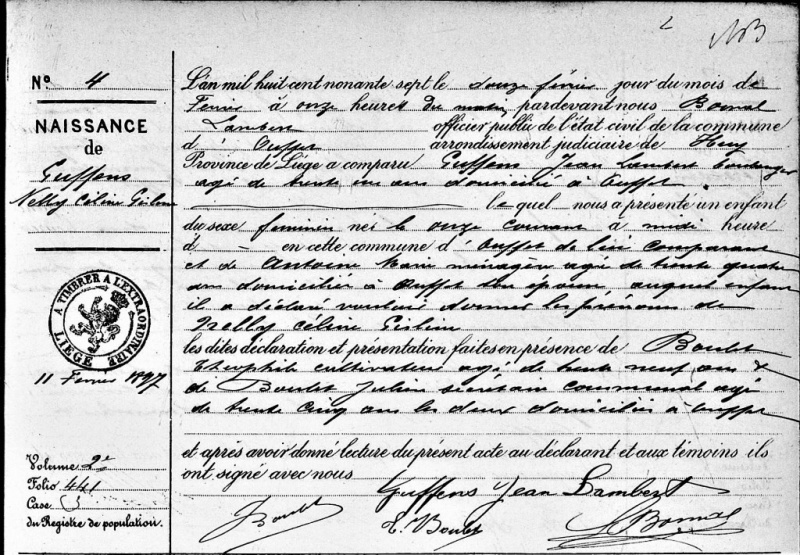 2
NB
N° 4
NAISSANCE
de
Guffens
Nelly Céline Gislène
A TIMBRER A L'EXTRAORDINAIRE
LIEGE
11 Février 1897
Volume 2e
Folio 441
Case
du Registre de population.
L'an mil huit cent nonante sept le douze février jour du mois de
Février à onze heures du matin, pardevant nous Bonmal
Lambert officier public de l'état civil de la commune
d' Ouffet arrondissement judiciaire de Huy
Province de Liége a comparu Guffens Jean Lambert boulanger
agé de trente un ans domicilié à Ouffet
le quel nous a présenté un enfant
du sexe féminin né le onze courant à midi heure
d - en cette commune d' Ouffet de lui comparant
et de Antoine Marie ménagère agée de trente quatre
ans domiciliée à Ouffet son épouse auquel enfant
il a déclaré vouloir donner les prénoms de
Nelly Céline Gislène
les dites déclaration et présentation faites en présence de Boulet
Théophile cultivateur agé de trente neuf ans &
de Boulet Julien secrétaire communal agé
de trente cinq ans les deux domiciliés à Ouffet
et après avoir donné lecture du présent acte au déclarant et aux témoins ils
ont signé avec nous
Guffens Jean Lambert
J Boulet T. Boulet L Bonmal